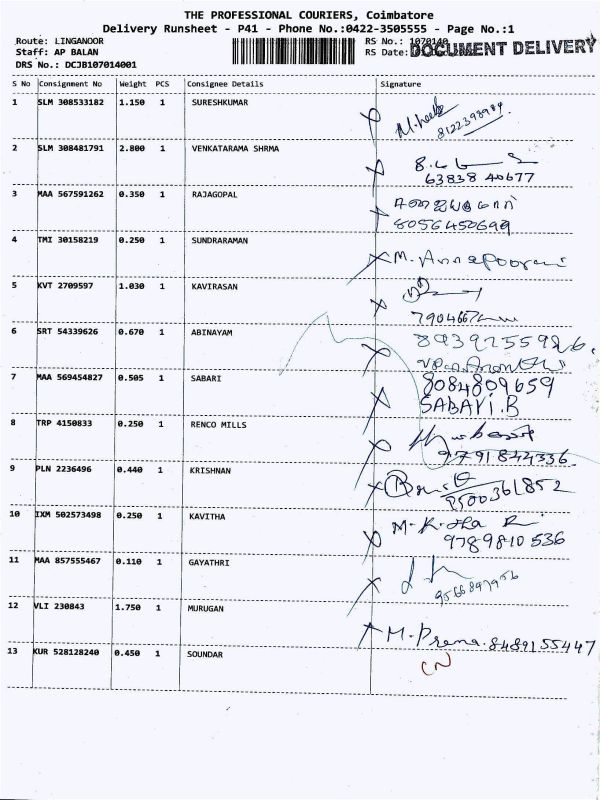 THE PROFESSIONAL COURIERS, Coimbatore
Delivery Runsheet - P41 - Phone No.:0422-3505555 - Page No.:1
Route: LINGANOOR
RS No.: 1070140
DOCUMENT DELIVERY
Staff: AP BALAN
RS Date:
DRS No.: DCJB107014001
S No Consignment No Weight PCS Consignee Details Signature
1 SLM 308533182 1.150 1 SURESHKUMAR
8122398984
2 SLM 308481791 2.800 1 VENKATARAMA SHRMA
63838 40677
3 MAA 567591262 0.350 1 RAJAGOPAL
8056450699
4 TMI 30158219 0.250 1 SUNDRARAMAN
M. Annapoorani
5 KVT 2709597 1.030 1 KAVIRASAN
6 SRT 54339626 0.670 1 ABINAYAM
7 MAA 569454827 0.505 1 SABARI
8084809659
SABARI.B
8 TRP 4150833 0.250 1 RENCO MILLS
9791844336
9 PLN 2236496 0.440 1 KRISHNAN
9500361852
10 IXM 502573498 0.250 1 KAVITHA
9789810536
11 MAA 857555467 0.110 1 GAYATHRI
9566897956
12 VLI 230843 1.750 1 MURUGAN
M. Prema. 8489155447
13 KUR 528128240 0.450 1 SOUNDAR
CN